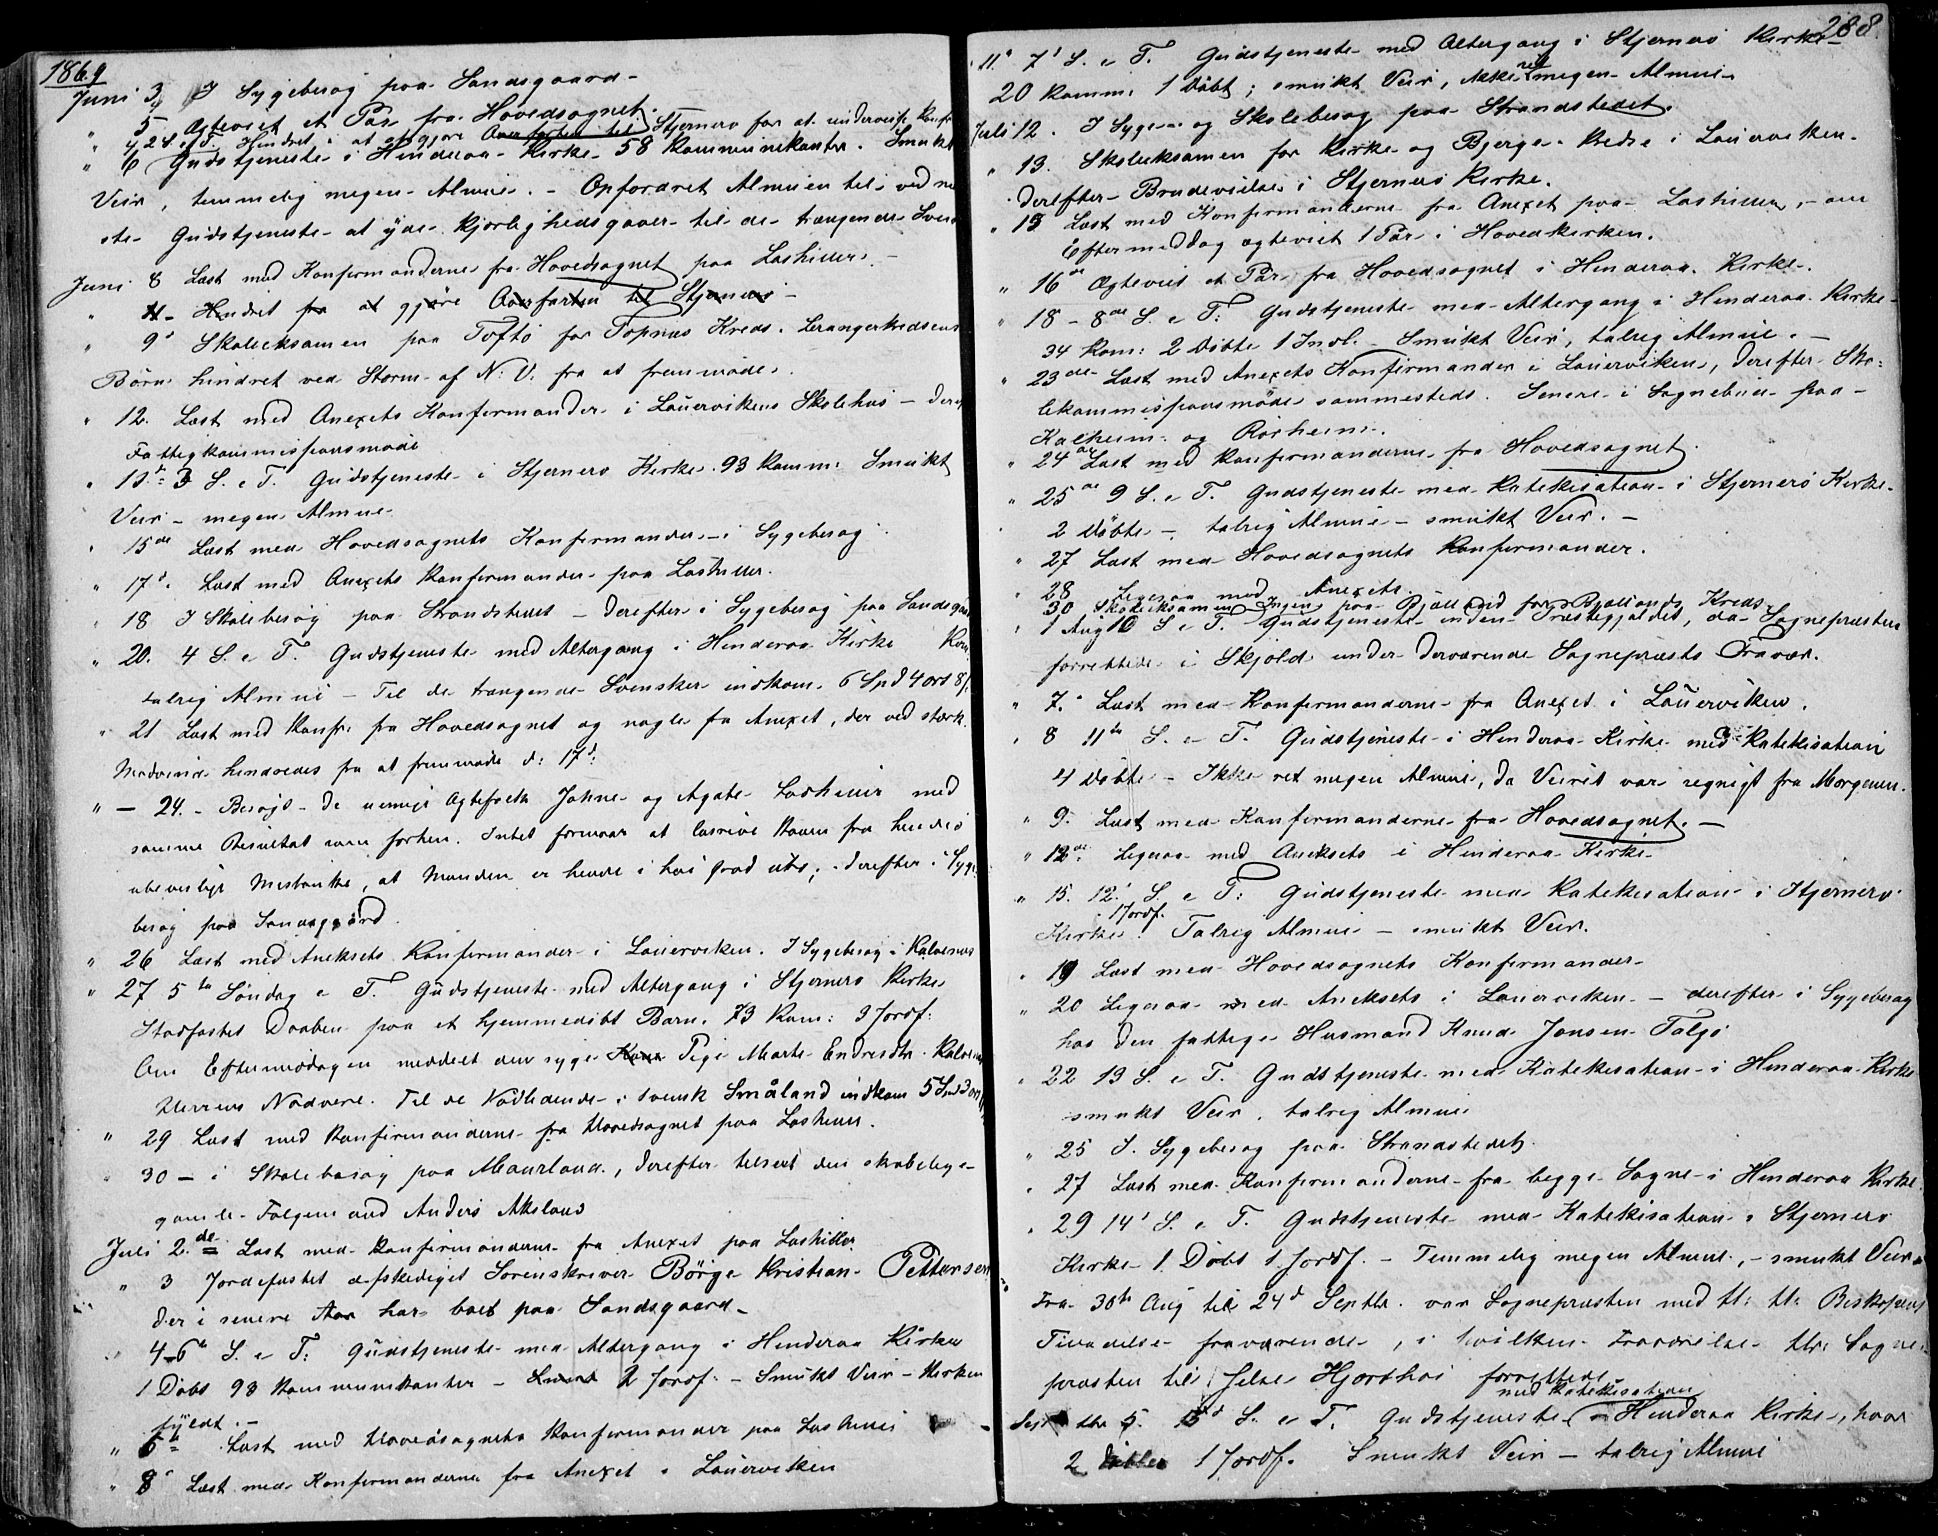 1869
Juni 3 I Sygebesøg paa Sandsgaard -
" 5 Ægteviet et Par fra Hovedsognet.
" 6 2 S. e. T. Hindret i at gjøre Overfarten til Stjernerø for at undervise Konf
Gudstjeneste i Hinderaa Kirke 58 Kommunikanter. Smukt
Veir, temmelig megen Almue. - Opfordret Almuen til ved næ
ste Gudstjeneste at yde Kjerlighedsgaver til de trængende Svens
Juni 8 Læst med Konfirmanderne fra Hovedsognet paa Lashiller. -
" 11 - Hindret fra at gjøre Overfarten til Stjernerø -
" 9d Skoleeksamen paa Toftø for Topnæs Kreds. Lerangerkredsens
Børn hindret ved Storm af N: V: fra at fremmøde.
" 12. Læst med Anexets Konfirmander i Lauervikens Skolehus - deref
Fattigkommissionsmøde
" 13de 3 S. e T. Gudstjeneste i Stjernerø Kirke. 93 Komm: Smukt
Veir - megen Almue
" 15de Læst med Hovedsognets Konfirmander - i Sygebesøg
" 17d. Læst med Anexets Konfirmander paa Lashiller.
" 18 I Skolebesøg paa Strandstedet - derefter i Sygebesøg paa Sandsgaa
" 20. 4 S. e T. Gudstjeneste med Altergang i Hinderaa Kirke Kom.
talrig Almue - Til de trængende Svensker indkom 6 Spd 4 ort 8 s.
" 21 Læst med Konfr. fra Hovedsognet og nogle fra Anexet, der ved stærk
Modvind hindredes fra at fremmøde d: 17d:
" - 24. - Besøgt de uenige Ægtefolk Johne og Agate Lashiller med
samme Resultat som forhen. Intet formaar at løsrive Konen fra hendes
ubevislige Mistanke, at Manden er hende i høi Grad utro; - derefter i Syge
besøg paa Sandsgaard.
" 26 Læst med Aneksets Konfirmander i Lauerviken. I Sygebesøg i Kalvenes
" 27 5te Søndag e T. Gudstjeneste med Altergang i Stjernerø Kirke
Stadfæstet Daaben paa et hjemmedøbt Barn. 73 Kom: 3 Jordf:
Om Eftermiddagen meddelt den syge Kone Pige Marte Endresdtr. Kalvenes
Herrens Nadvere. Til de Nødlidende i svensk Småland indkom 5 Spd 3 ort
" 29 Læst med Konfirmanderne fra Hovedsognet paa Lashiller.
" 30 - i Skolebesøg paa Maurland, derefter tilseet den skrøbelige
gamle Følgemand Anders Aksland
Juli 2.de Læst med Konfirmanderne fra Anexet paa Lashiller
" 3 Jordfæstet afskediget Sorenskriver Børge Kristian Pettersen
der i senere Aar har boet paa Sandsgaard -
" 4 - 6te S. e T: Gudstjeneste med Altergang i Hinderaa Kirke
1 Døbt 98 Kommunikanter - 2 Jordf. - Smukt Veir - Kirken
fyldt. -
" 6te Læst med Hovedsognets Konfirmander paa Lashiller
" 8d Læst med Konfirmanderne fra Anexet i Lauerviken
288.
" 11d 7d S. e T. Gudstjeneste med Altergang i Stjernerø Kirke
20 Komm: 1 Døbt; smukt Veir, ikke ret megen Almue
Juli 12. I Syge- og Skolebesøg paa Strandstedet.
" 13. Skoleeksamen for Kirke- og Bjerge-Kredse i Lauerviken.
derefter Brudevielse i Stjernerø Kirke.
" 15 Læst med Konfirmanderne fra Anexet paa Lashiller, - om
Eftermiddag ægteviet 1 Par i Hovedkirken.
" 16de Ægteviet et Par fra Hovedsognet i Hinderaa Kirke.
" 18 - 8de S. e T: Gudstjeneste med Altergang i Hinderaa Kirke
34 Kom: 2 Døbte 1 Indl. Smukt Veir, talrig Almue. -
" 23de Læst med Anexets Konfirmander i Lauerviken, derefter Sko-
lekommissionsmøde sammesteds. Senere i Sognebud paa
Kalheim og Rørheim.
" 24de Læst med Konfirmanderne fra Hovedsognet.
" 25de 9 S. e T. Gudstjeneste med Katekisation i Stjernerø Kirke.
2 Døbte - talrig Almue - smukt Veir. -
" 27 Læst med Hovedsognets Konfirmander.
" 28 Ligesaa med Anexets.
30 Skoleeksamen paa Bjælland for Bjællands Kreds.
" 1 Aug 10 S e T. Ingen Gudstjeneste inden Præstegjældet, da Sognepræsten
forrettede i Skjold under derværende Sognepræsts Fravær.
" 7. Læst med Konfirmanderne fra Anexet i Lauerviken.
" 8 11te S. e T. Gudstjeneste i Hinderaa Kirke med Katekisation
4 Døbte - Ikke ret megen Almue, da Veiret var regnigt fra Morgenen.
" 9. Læst med Konfirmanderne fra Hovedsognet. -
" 12de. Ligesaa med Aneksets i Hinderaa Kirke -
" 15. 12d S. e T: Gudstjeneste med Katekisation i Stjernerø
Kirke. 1 Jordf. Talrig Almue - smukt Veir.
" 19 Læst med Hovedsognets Konfirmander -
" 20 Ligesaa med Aneksets i Lauerviken - derefter i Sygebesøg
hos den fattige Husmand Knud Jonsen Talgø
" 22 13 S. e T. Gudstjeneste med Katekisation i Hinderaa Kirke
smukt Veir, talrig Almue
" 25 I Sygebesøg paa Strandstedet.
" 27 Læst med Konfirmanderne fra begge Sogne i Hinderaa Kirke
" 29 14d S. e T. Gudstjeneste med Katekisation i Stjernerø
Kirke 1 Døbt 1 Jordf. - Temmelig megen Almue, - smukt Veir.
Fra 30te Aug til 24d Septbr. var Sognepræsten med H: H: Biskopens
Tilladelse fraværende, i hvilken Hr. Sogne-
præsten til Jelse Hjorthøi forrettede
Septbr 5. 15d S. e T. Gudstjeneste med Katekisation i Hinderaa Kirke, hvor
2 Døbtes 1 Jordf. Smukt Veir - talrig Almue